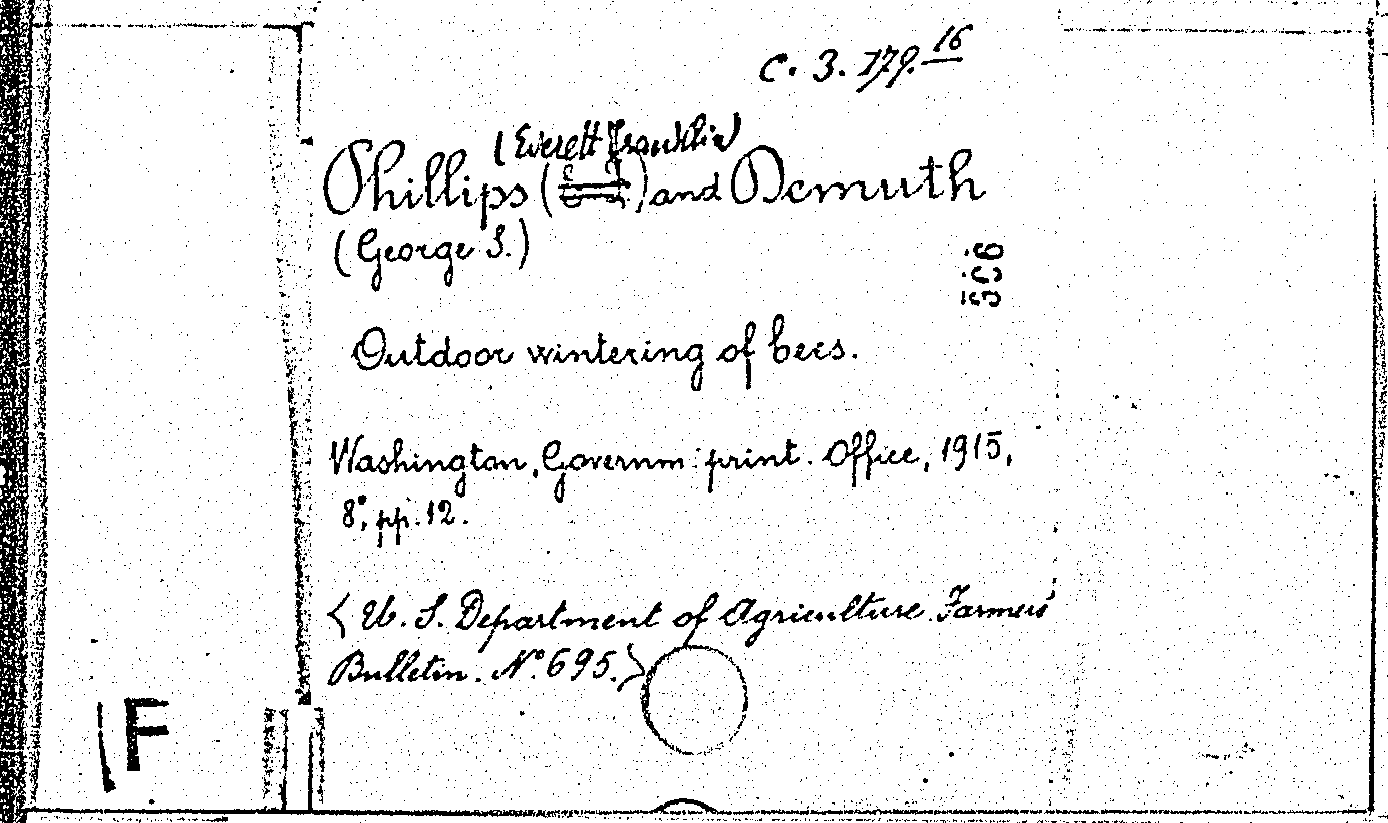 C. 3. 179. 16
(Everett Franklin)
Phillips ( ) and Demuth
(George S.)
Outdoor wintering of bees.
Washington, Governm: print. Office, 1915,
8°, pp. 12.
< U. S. Department of Agriculture. Farmers'
Bulletin. N° 695. >
F